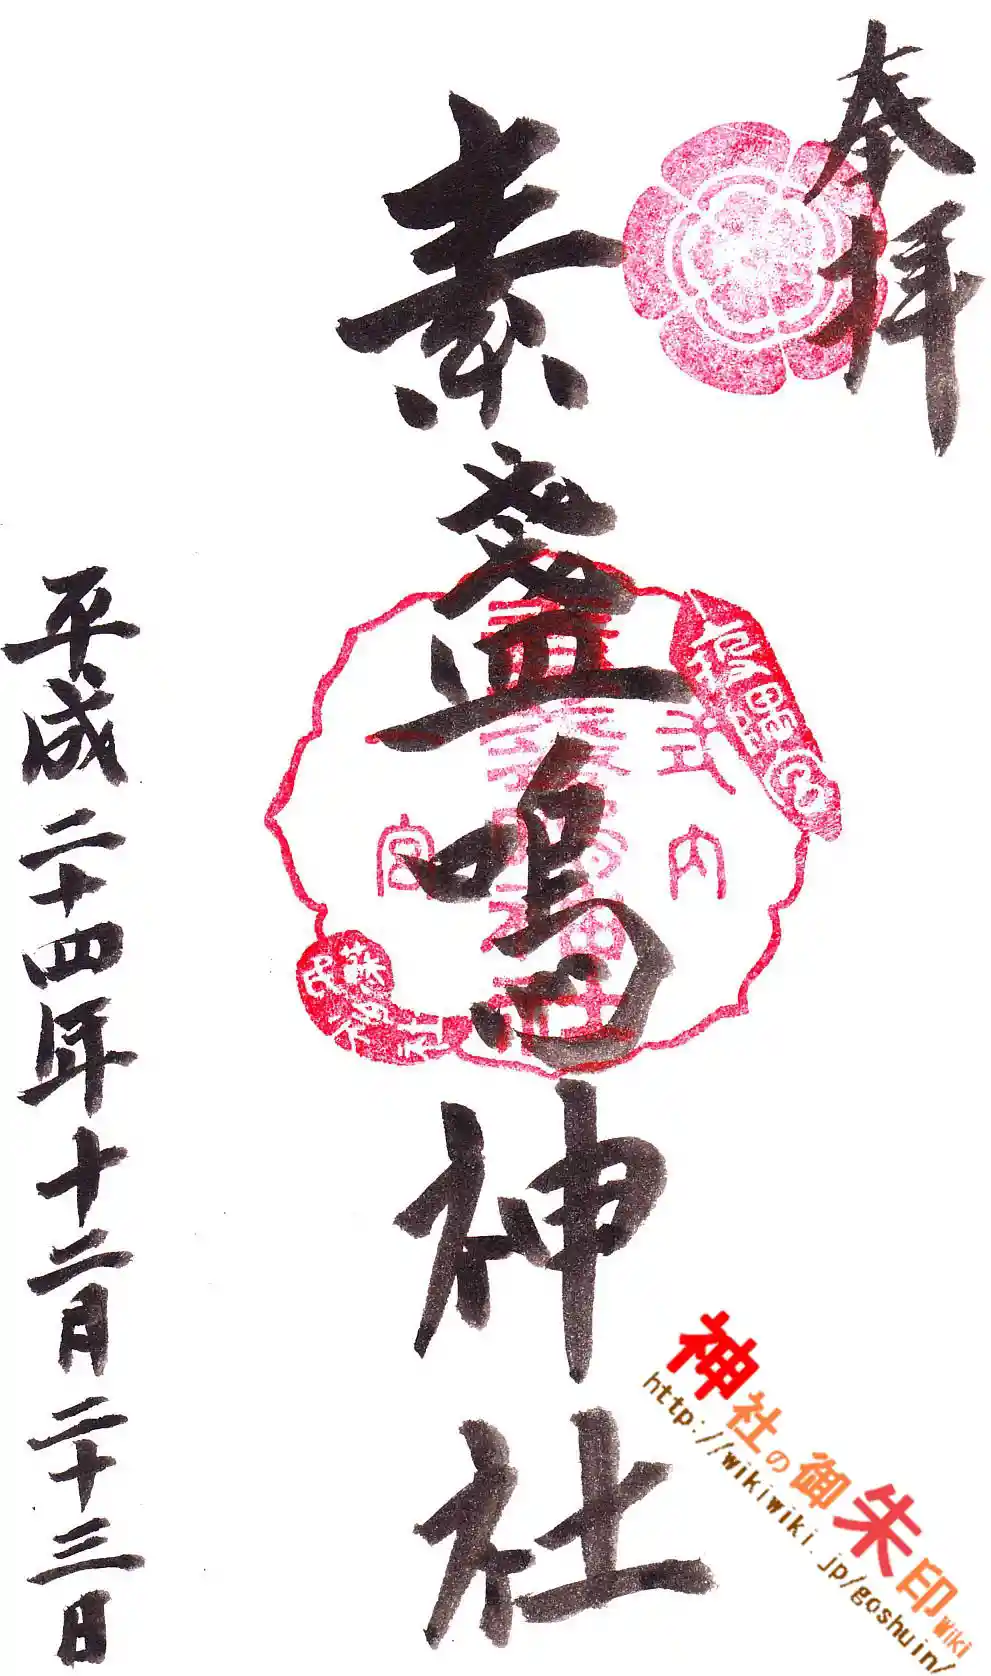 奉拝
素盞嗚神社
式内
宮
平成二十四年十二月二十三日
神社の御朱印Wiki
http://wikiwiki.jp/goshuin/